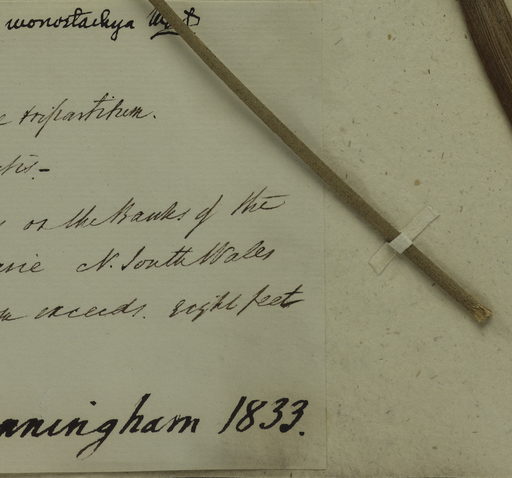 monostachya
tripartitum.
on the Banks of the
N. South Wales
exceeds. eight feet
nningham 1833.